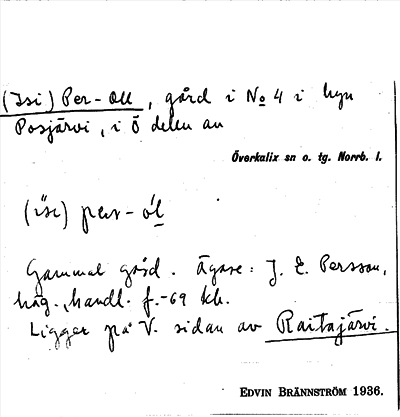 (Isi) Per-Oll, gård i No 4 i byn
Posjärvi, i Ö delen av
Överkalix sn o. tg. Norrb. l.
(ísi) per-ól
Gammal gård. Ägare: J. E. Persson,
häg., handl. f.-69 kb.
Ligger på V. sidan av Raitajärvi.
EDVIN BRÄNNSTRÖM 1936.